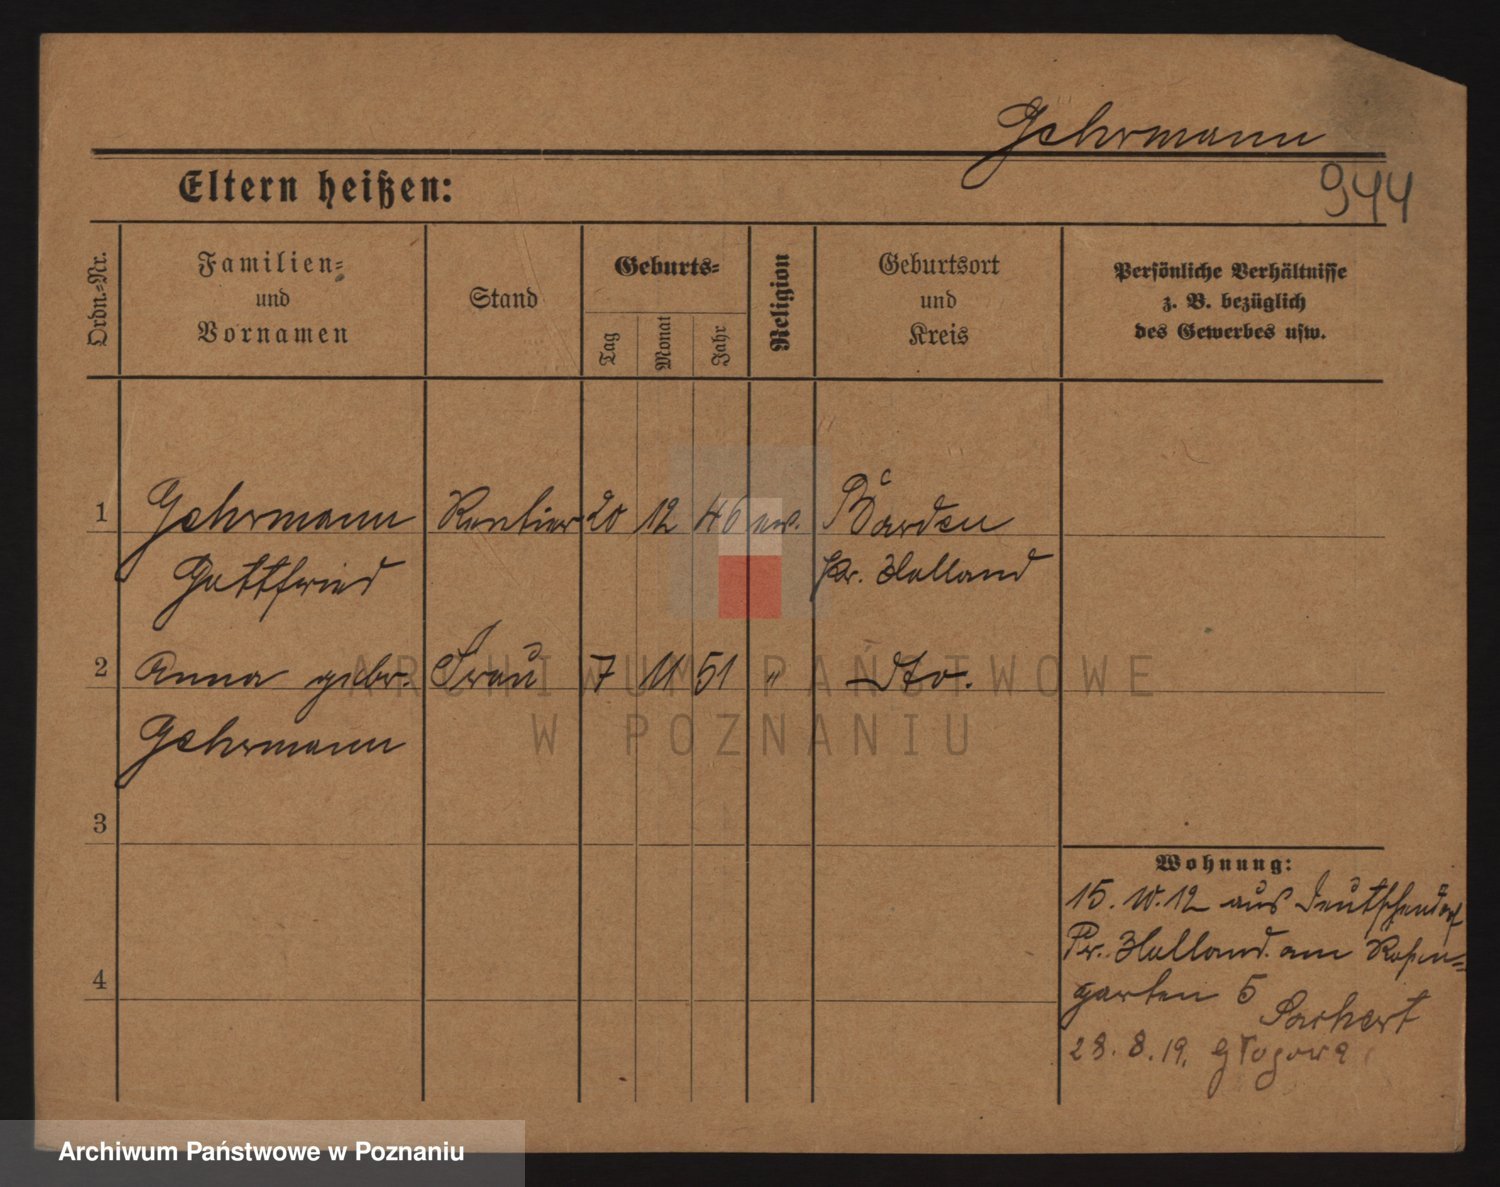 Gehrmann
944
Eltern heißen:
Ordn.-Nr.
Familien-
und
Vornamen
Stand
Geburts-
Tag
Monat
Jahr
Religion
Geburtsort
und
Kreis
Persönliche Verhältnisse
z. B. bezüglich
des Gewerbes usw.
1 Gehrmann Rentier 20 12 46 ev. Bärden
Gottfried Pr. Holland
2 Anna gebr. Frau 7 11 51 " dto.
Gehrmann
3
4
Wohnung:
15. 10. 12 aus Deutschendorf
Pr. Holland. am Rosen-
garten 5
28. 8. 19.
ARCHIWUM PAŃSTWOWE
W POZNANIU
Archiwum Państwowe w Poznaniu